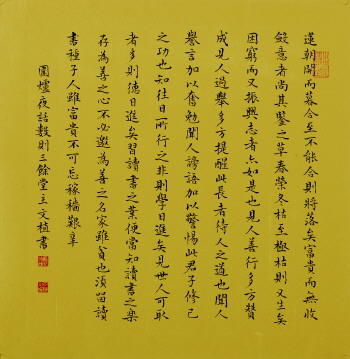 蓮朝開而暮合至不能合則將落矣富貴而無收
斂意者尚其鑒之草春榮冬枯至極枯則又生矣
困窮而又振興志者亦如是也見人善行多方贊
成見人過舉多方提醒此長者待人之道也聞人
譽言加以奮勉聞人謗語加以警惕此君子修己
之功也知往日所行之非則學日進矣見世人可取
者多則德日進矣習讀書之業便當知讀書之樂
存為善之心不必邀為善之名家雖貧也須留讀
書種子人雖富貴不可忘稼穡艱辛
圍爐夜話數則三餘堂主文植書